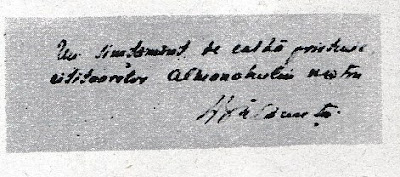 Un simțământ de caldă prietenie
cititoarelor Almanahului nostru